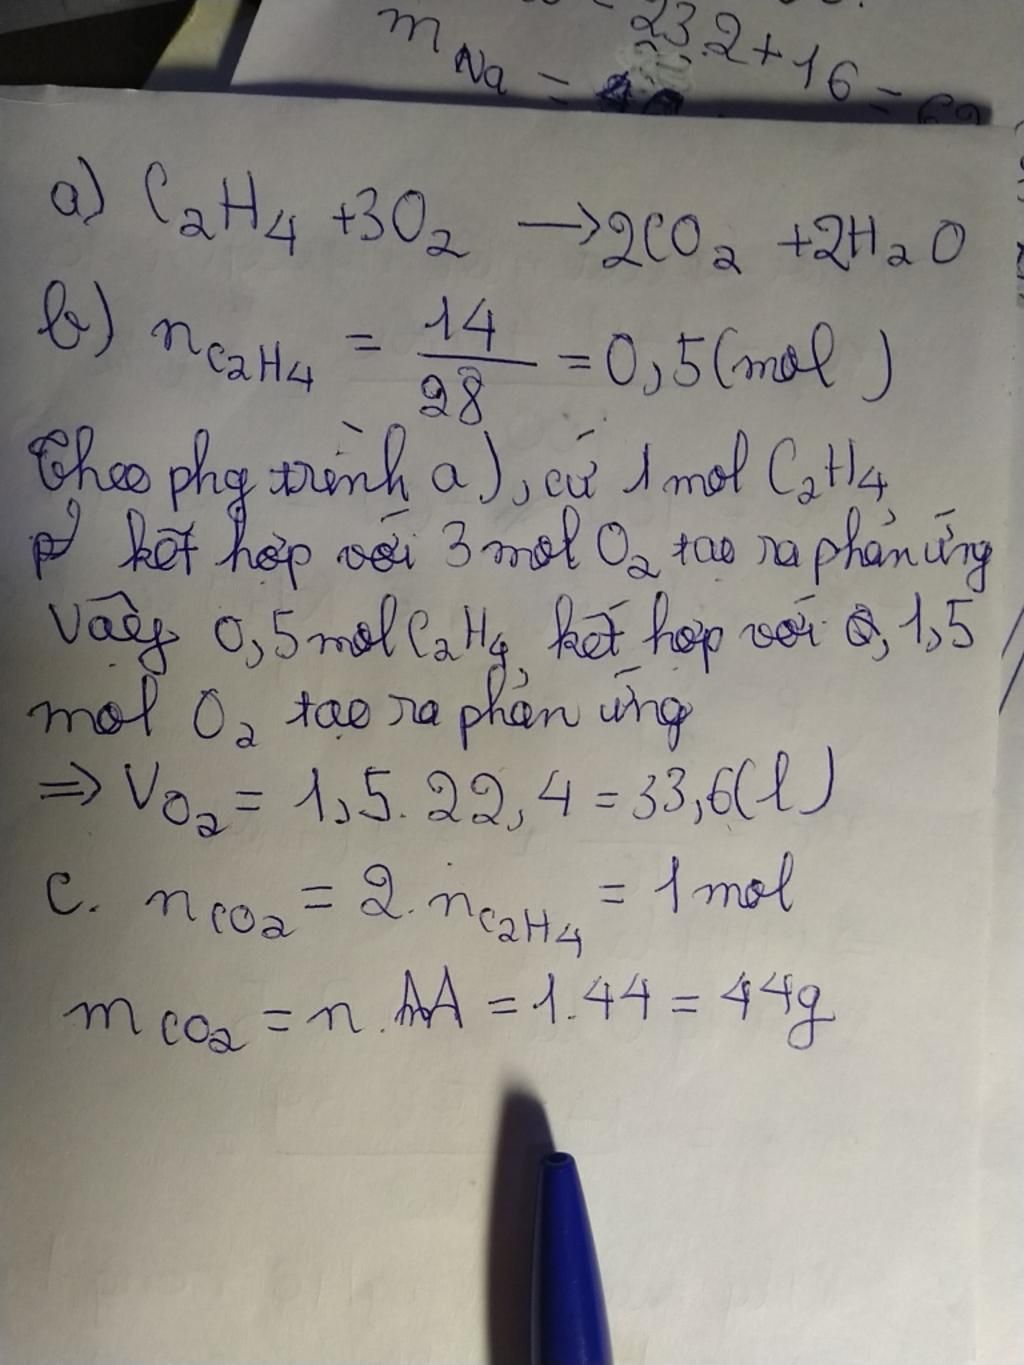 m Na = 23.2+16 =
a) C₂H₄ +3O₂ → 2CO₂ +2H₂O
b) n C₂H₄ = 14/28 = 0,5(mol)
Theo phg trình a), cứ 1 mol C₂H₄
kết hợp với 3 mol O₂ tạo ra phản ứng
Vậy 0,5 mol C₂H₄ kết hợp với 1,5
mol O₂ tạo ra phản ứng
⇒ V O₂ = 1,5 . 22,4 = 33,6(l)
c. n CO₂ = 2. n C₂H₄ = 1 mol
m CO₂ = n . M = 1.44 = 44g